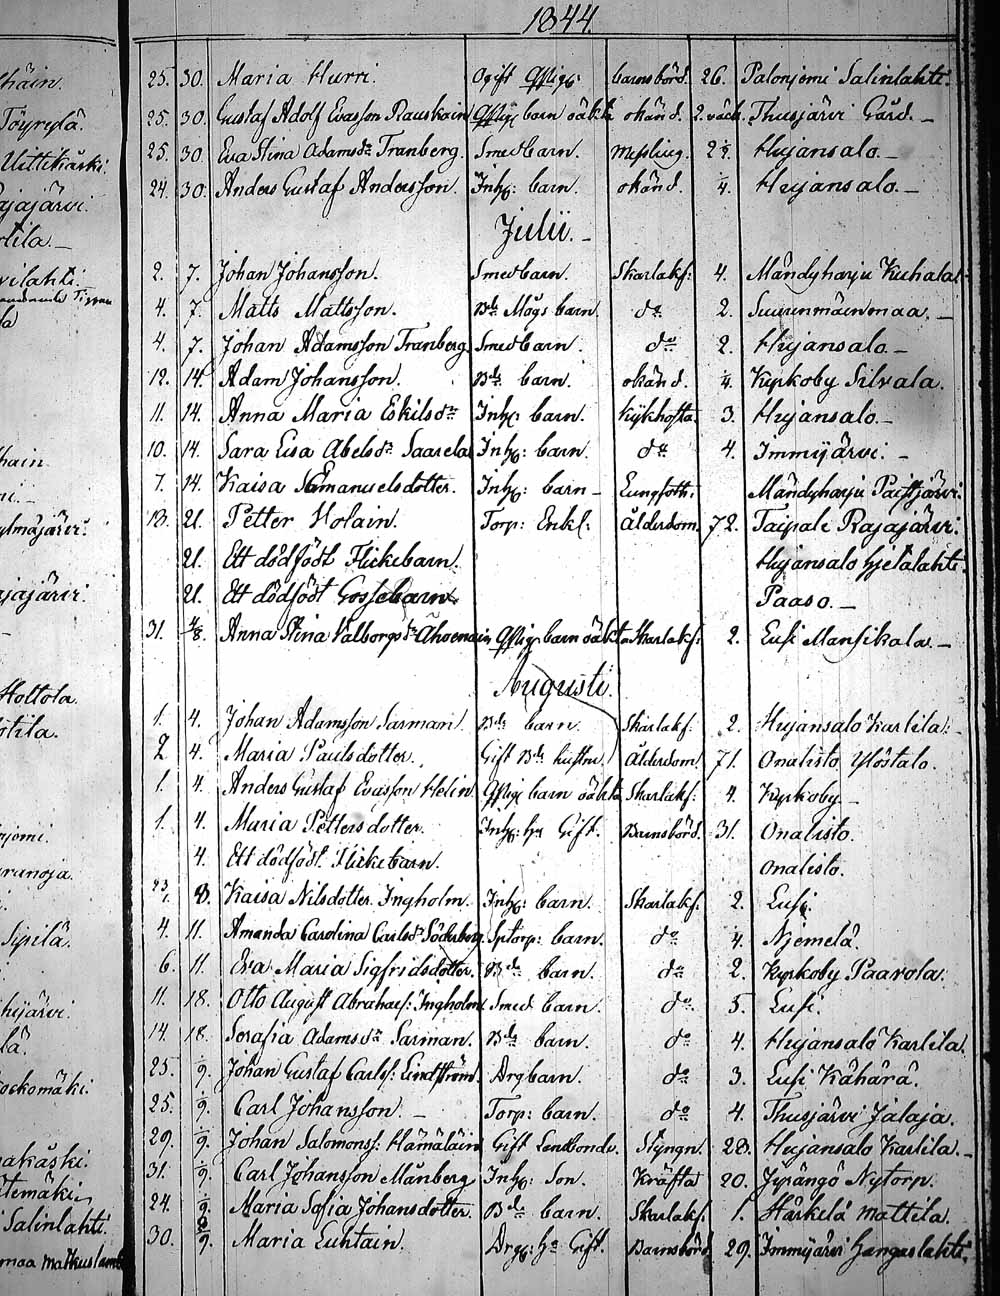 1844.
25. 30. Maria Hurri. Ogift barnsbörd. 26. Palonjemi Salinlahti.
25. 30. Gustaf Adolf Evasson Rauskain barn oäkta okänd. 2. veck. Thusjärvi Gård. —
25. 30. Eva Stina Adamsdr Tranberg. Smedbarn. Messling. 2 1/2. Hujansalo. —
24. 30. Anders Gustaf Andersson. Inh: barn. okänd. 1/4. Hujansalo. —
Julii. —
2. 7. Johan Johansson. Smedbarn. Skarlaksf: 4. Mändyharju Kuhala
4. 7. Matts Mattsson. Bde Mågs barn. do 2. Suurenmäinmaa. —
4. 7. Johan Adamsson Tranberg. Smedbarn. do 2. Hujansalo —
12. 14. Adam Johansson. Bde barn. okänd. 1/4. Kyrkoby Silvala.
11. 14. Anna Maria Eskilsdr Inh: barn. Kykhosta. 3. Hujansalo. —
10. 14. Sara Lisa Abelsdr Saarela Inh: barn. do 4. Immijärvi. —
7. 14. Kaisa Emanuelsdotter. Inh: barn — Lungsoth: Mändyharju Paistjärvi.
13. 21. Petter Holain. Torp: Enkl: Ålderdom. 72. Taipale Rajajärvi.
21. Ett dödfödt Flickebarn. Hujansalo Hjetalahti.
21. Ett dödfödt Gossebarn. Paaso. —
31. 4/8. Anna Stina Valborgsdr Ahoenain barn oäkta Skarlaksf. 2. Lusi Mansikala. —
Augusti.
1. 4. Johan Adamsson Sarman. Bde barn. Skarlaksf. 2. Hujansalo Karlila.
2 4. Maria Paulsdotter. Gift Bde hustru. Ålderdom. 71. Onalisto Ylöstalo.
1. 4. Anders Gustaf Evasson Helin. barn oäkta Skarlaksf: 4. Kyrkoby —
1. 4. Maria Pettersdotter. Inh: Gift. Barnsbörd. 31. Onalisto.
4. Ett dödfödt Flickebarn. Onalisto.
Kaisa Nilsdotter Ingholm. Inh: barn. Skarlaksf. 2. Lusi.
4. 11. Amanda Carolina Carlsdr Söderberg. Sptorp: barn. do 4. Njemelä.
6. 11. Eva Maria Sigfridsdotter. Bde barn. do 2. Kyrkoby Paavola.
11. 18. Otto August Abrahams: Ingholm. Smed barn. do 5. Lusi.
14. 18. Serafia Adamsdr Sarman. Bde barn. do 4. Hujansalo Karlila.
25. 1/9. Johan Gustaf Carls: Lindström. Drgbarn. do 3. Lusi Kähärä.
25. 1/9. Carl Johansson. — Torp: barn. do 4. Thusjärvi Jalaja.
29. 1/9. Johan Salomons: Hämäläin Gift Landbonde. Styngn. 28. Hujansalo Karlila. —
31. 1/9. Carl Johansson Månberg Inh: Son. Kräfta 20. Jyrängö Nytorp.
24. 1/9. Maria Sofia Johansdotter. Bde barn. Skarlaksf: 1. Härkelä Mattila.
30. 8/9. Maria Luhtain. Drg: Gift. Barnsbörd 29. Immijärvi Hangaslahti.
häin.
Töyrylä.
Uittikäski.
ajajärvi.
tila. —
vilahti.
Tirran
la
hain
ni. —
ylmäjärvi.
ajajärvi.
Holtola.
ötila.
njemi.
runoja.
Sipilä.
hijärvi.
lä.
ockomäki.
akäski.
temäki.
Salinlahti.
maa